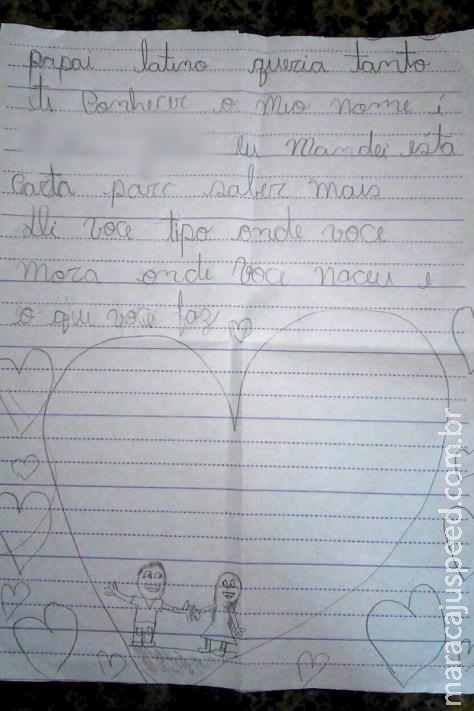 papai latino queria tanto
ti conhecer o mio nome é
eu mandei esta
carta para saber mais
di voce tipo onde voce
mora onde voce naceu e
o que você faz
maracajuspeed.com.br